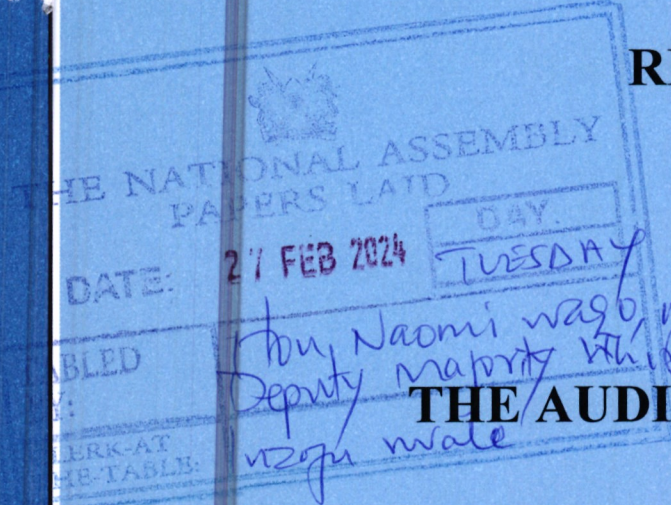 RE
THE NATIONAL ASSEMBLY
PAPERS LAID
DATE: 27 FEB 2024
DAY.
TUESDAY
TABLED BY:
Hon, Naomi Waqo,
Deputy Majority Whip
THE AUDI
CLERK-AT
THE-TABLE: